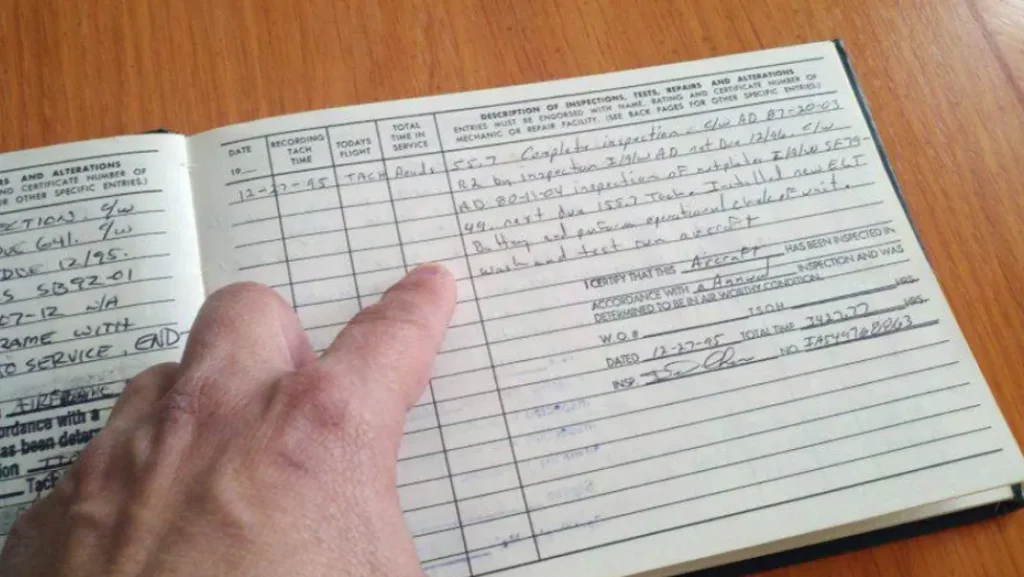 RS AND ALTERATIONS
AND CERTIFICATE NUMBER OF
OR OTHER SPECIFIC ENTRIES.)
ECTION. C/W
DUE 641. C/W
DUE 12/95.
S SB92-01
07-12 N/A
RAME WITH
TO SERVICE. END
AIRFRAME
ordance with a
as been deter
ion
Tach
DATE
19
RECORDING
TACH
TIME
TODAYS
FLIGHT
TOTAL
TIME IN
SERVICE
DESCRIPTION OF INSPECTIONS, TESTS, REPAIRS AND ALTERATIONS
ENTRIES MUST BE ENDORSED WITH NAME, RATING AND CERTIFICATE NUMBER OF
MECHANIC OR REPAIR FACILITY. (SEE BACK PAGES FOR OTHER SPECIFIC ENTRIES.)
12-27-95 TACH 55.7 Complete inspection - C/W AD 87-20-03
R2 by inspection I/A/W AD not Due 12/96. C/W
AD 80-11-04 inspection of nutplates I/A/W SE79-
49. next due 155.7 Tach. Installed new ELT
Battery and perform operational check of unit.
wash and test run aircraft
I CERTIFY THAT THIS Aircraft HAS BEEN INSPECTED IN
ACCORDANCE WITH a Annual INSPECTION AND WAS
DETERMINED TO BE IN AIR WORTHY CONDITION.
W.O.# T.S.O.H. HRS.
DATED 12-27-95 TOTAL TIME 3427.77 HRS.
INSP. NO.